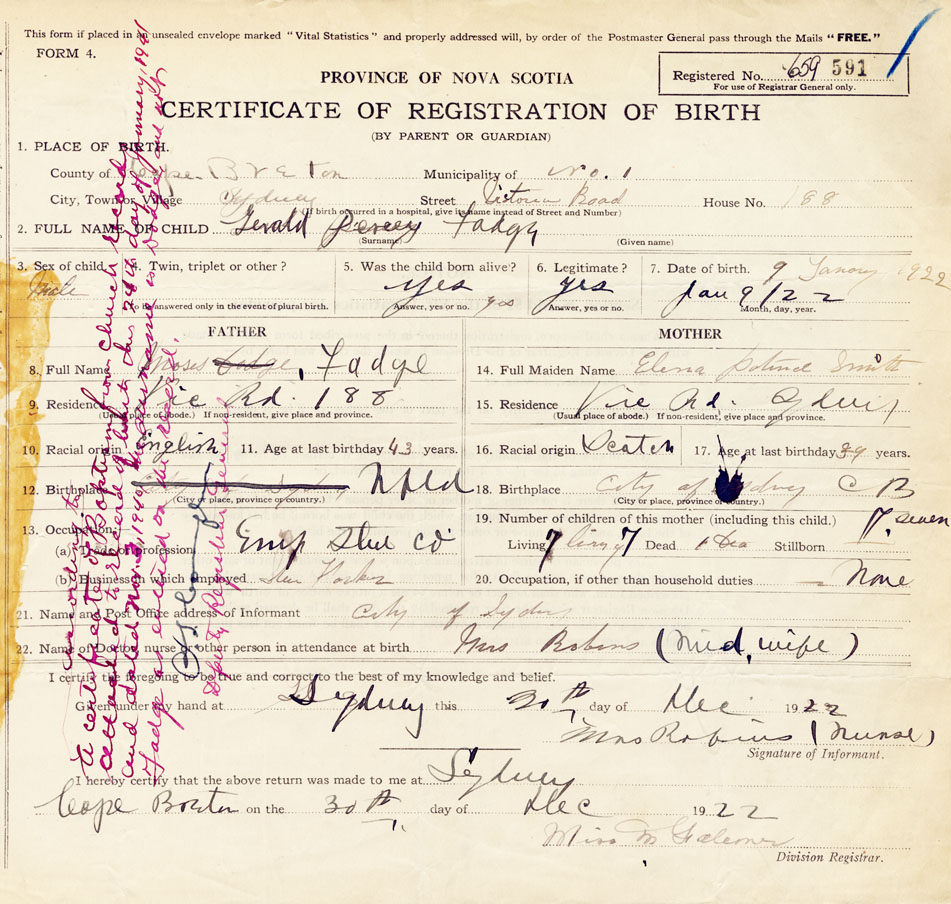 This form if placed in an unsealed envelope marked "Vital Statistics" and properly addressed will, by order of the Postmaster General pass through the Mails "FREE."
FORM 4.
PROVINCE OF NOVA SCOTIA
Registered No. 659 591
For use of Registrar General only.
CERTIFICATE OF REGISTRATION OF BIRTH
(BY PARENT OR GUARDIAN)
1. PLACE OF BIRTH.
County of Cape Breton Municipality of No. 1
City, Town or Village Sydney Street Victoria Road House No. 188
(If birth occurred in a hospital, give its name instead of Street and Number)
2. FULL NAME OF CHILD Gerald Percey Fadge
(Surname) (Given name)
3. Sex of child 4. Twin, triplet or other? 5. Was the child born alive? 6. Legitimate? 7. Date of birth. 9 Janury 1922
Male yes yes Jan 9/22
To be answered only in the event of plural birth. Answer, yes or no. yes Answer, yes or no. Month, day, year.
FATHER
8. Full Name Moses Fadge
9. Residence Vic Rd. 188
(Usual place of abode.) If non-resident, give place and province.
10. Racial origin English 11. Age at last birthday 43 years.
12. Birthplace Nfld
(City or place, province or country.)
13. Occupation:
(a) Trade or profession Emp Steel Co
(b) Business in which employed
MOTHER
14. Full Maiden Name Smith
15. Residence Vic Rd. Sydney
(Usual place of abode.) If non-resident, give place and province.
16. Racial origin Scotch 17. Age at last birthday 39 years.
18. Birthplace City of Sydney C B
(City or place, province or country.)
19. Number of children of this mother (including this child.) 7, seven
Living 7 living 7 Dead 1 Stillborn
20. Occupation, if other than household duties None
21. Name and Post Office address of Informant City of Sydney
22. Name of Doctor, nurse or other person in attendance at birth Mrs Robins (Mid, wife)
I certify the foregoing to be true and correct to the best of my knowledge and belief.
Given under my hand at Sydney this 30th day of Dec 1922
Mrs Robins (Nurse)
Signature of Informant.
I hereby certify that the above return was made to me at Sydney
Cape Breton on the 30th day of Dec 1922
Miss M Falconer
Division Registrar.
according to
a certificate of Baptism from church record
attached to record of birth this 24th day of January, 1941
and dated Nov. 3, 1940, the surname is Dodge and not
Fadge as entered on the record.
Deputy Registrar General